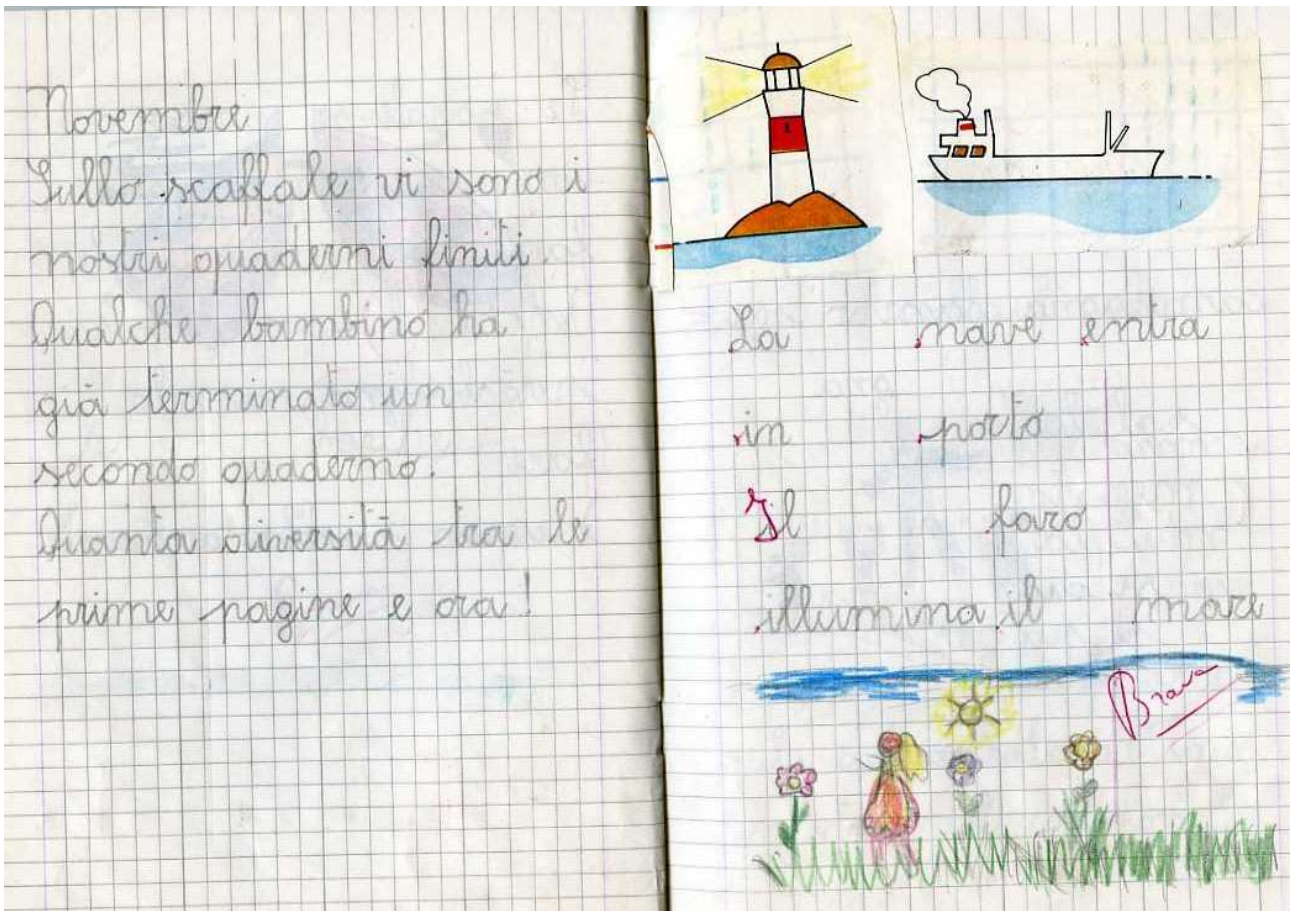 Novembre
Sullo scaffale vi sono i
nostri quaderni finiti.
Qualche bambino ha
già terminato un
secondo quaderno.
Quanta diversità tra le
prime pagine e ora!
La nave entra
in porto
Il faro
illumina il mare
Brava